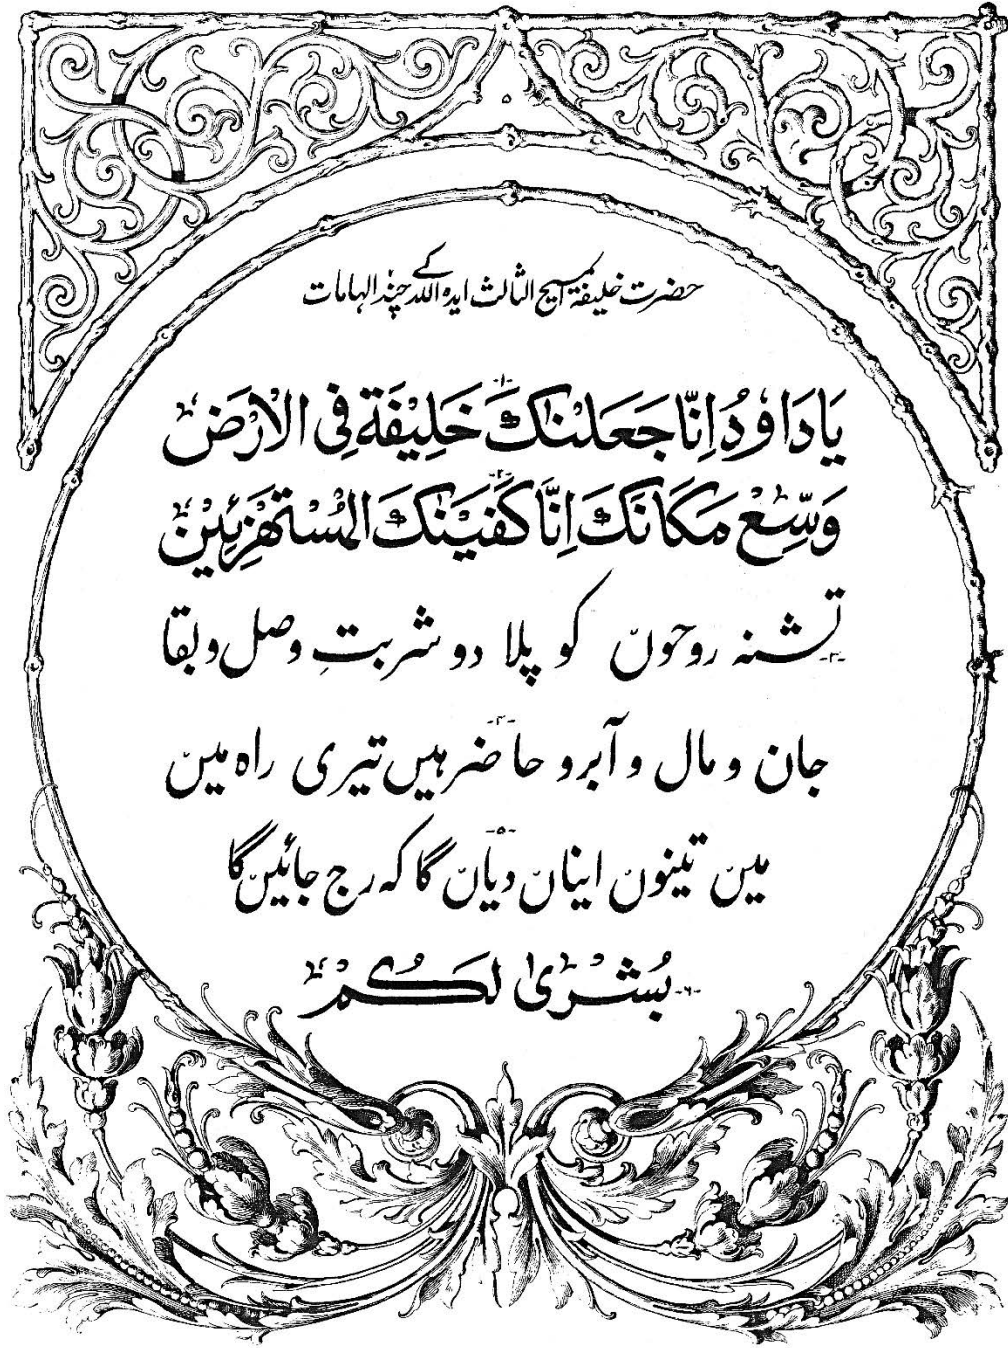 حضرت خلیفۃ المسیح الثالث ایدہ اللہ کے چند الہامات
یَا دَاوٗدُ اِنَّا جَعَلْنٰكَ خَلِیْفَةً فِی الْاَرْضِ -۱-
وَسِّعْ مَكَانَكَ اِنَّا كَفَیْنٰكَ الْمُسْتَهْزِئِیْنَ -۲-
-۳- تشنہ روحوں کو پلا دو شربتِ وصل و بقا
جان و مال و آبرو حاضر ہیں تیری راہ میں -۴-
میں تینوں ایناں دیاں گا کہ رج جائیں گا -۵-
-۶- بُشْرٰی لَكُمْ